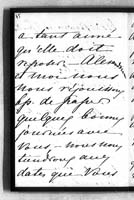 a tant aimé
qu'elle doit
reposer. Alexandre
et moi nous
nous réjouissons
de passer
quelques bonnes
journées avec
vous. nous nous
tiendrons aux
dates que vous